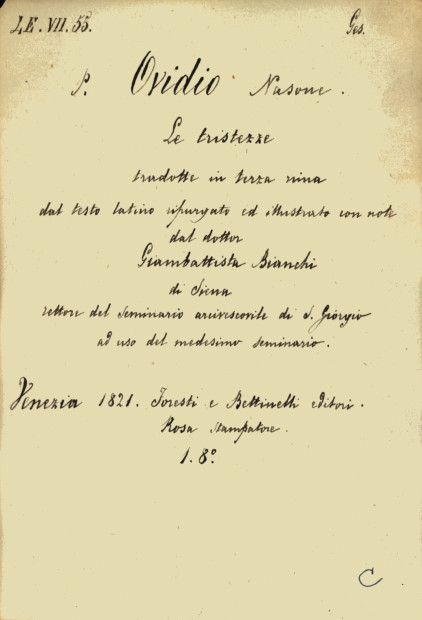 LE. VII. 55. Ges.
P. Ovidio Nasone.
Le tristezze
tradotte in terza rima
dal testo latino ripurgato ed illustrato con note
dal dottor
Giambattista Bianchi
di Siena
rettore del seminario arcivescovile di S. Giorgio
ad uso del medesimo seminario.
Venezia 1821. Foresti e Bettinelli editori.
Rosa stampatore.
1. 8.º
C